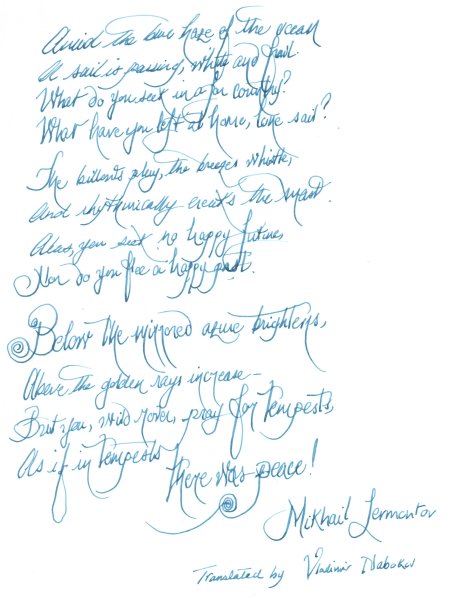 Amid the blue haze of the ocean
A sail is passing, white and frail.
What do you seek in a far country?
What have you left at home, lone sail?
The billows play, the breezes whistle,
And rhythmically creaks the mast.
Alas, you seek no happy future,
Nor do you flee a happy past.
Below the mirrored azure brightens,
Above the golden rays increase—
But you, wild rover, pray for tempests,
As if in tempests
there was peace!
Mikhail Lermontov
Translated by Vladimir Nabokov